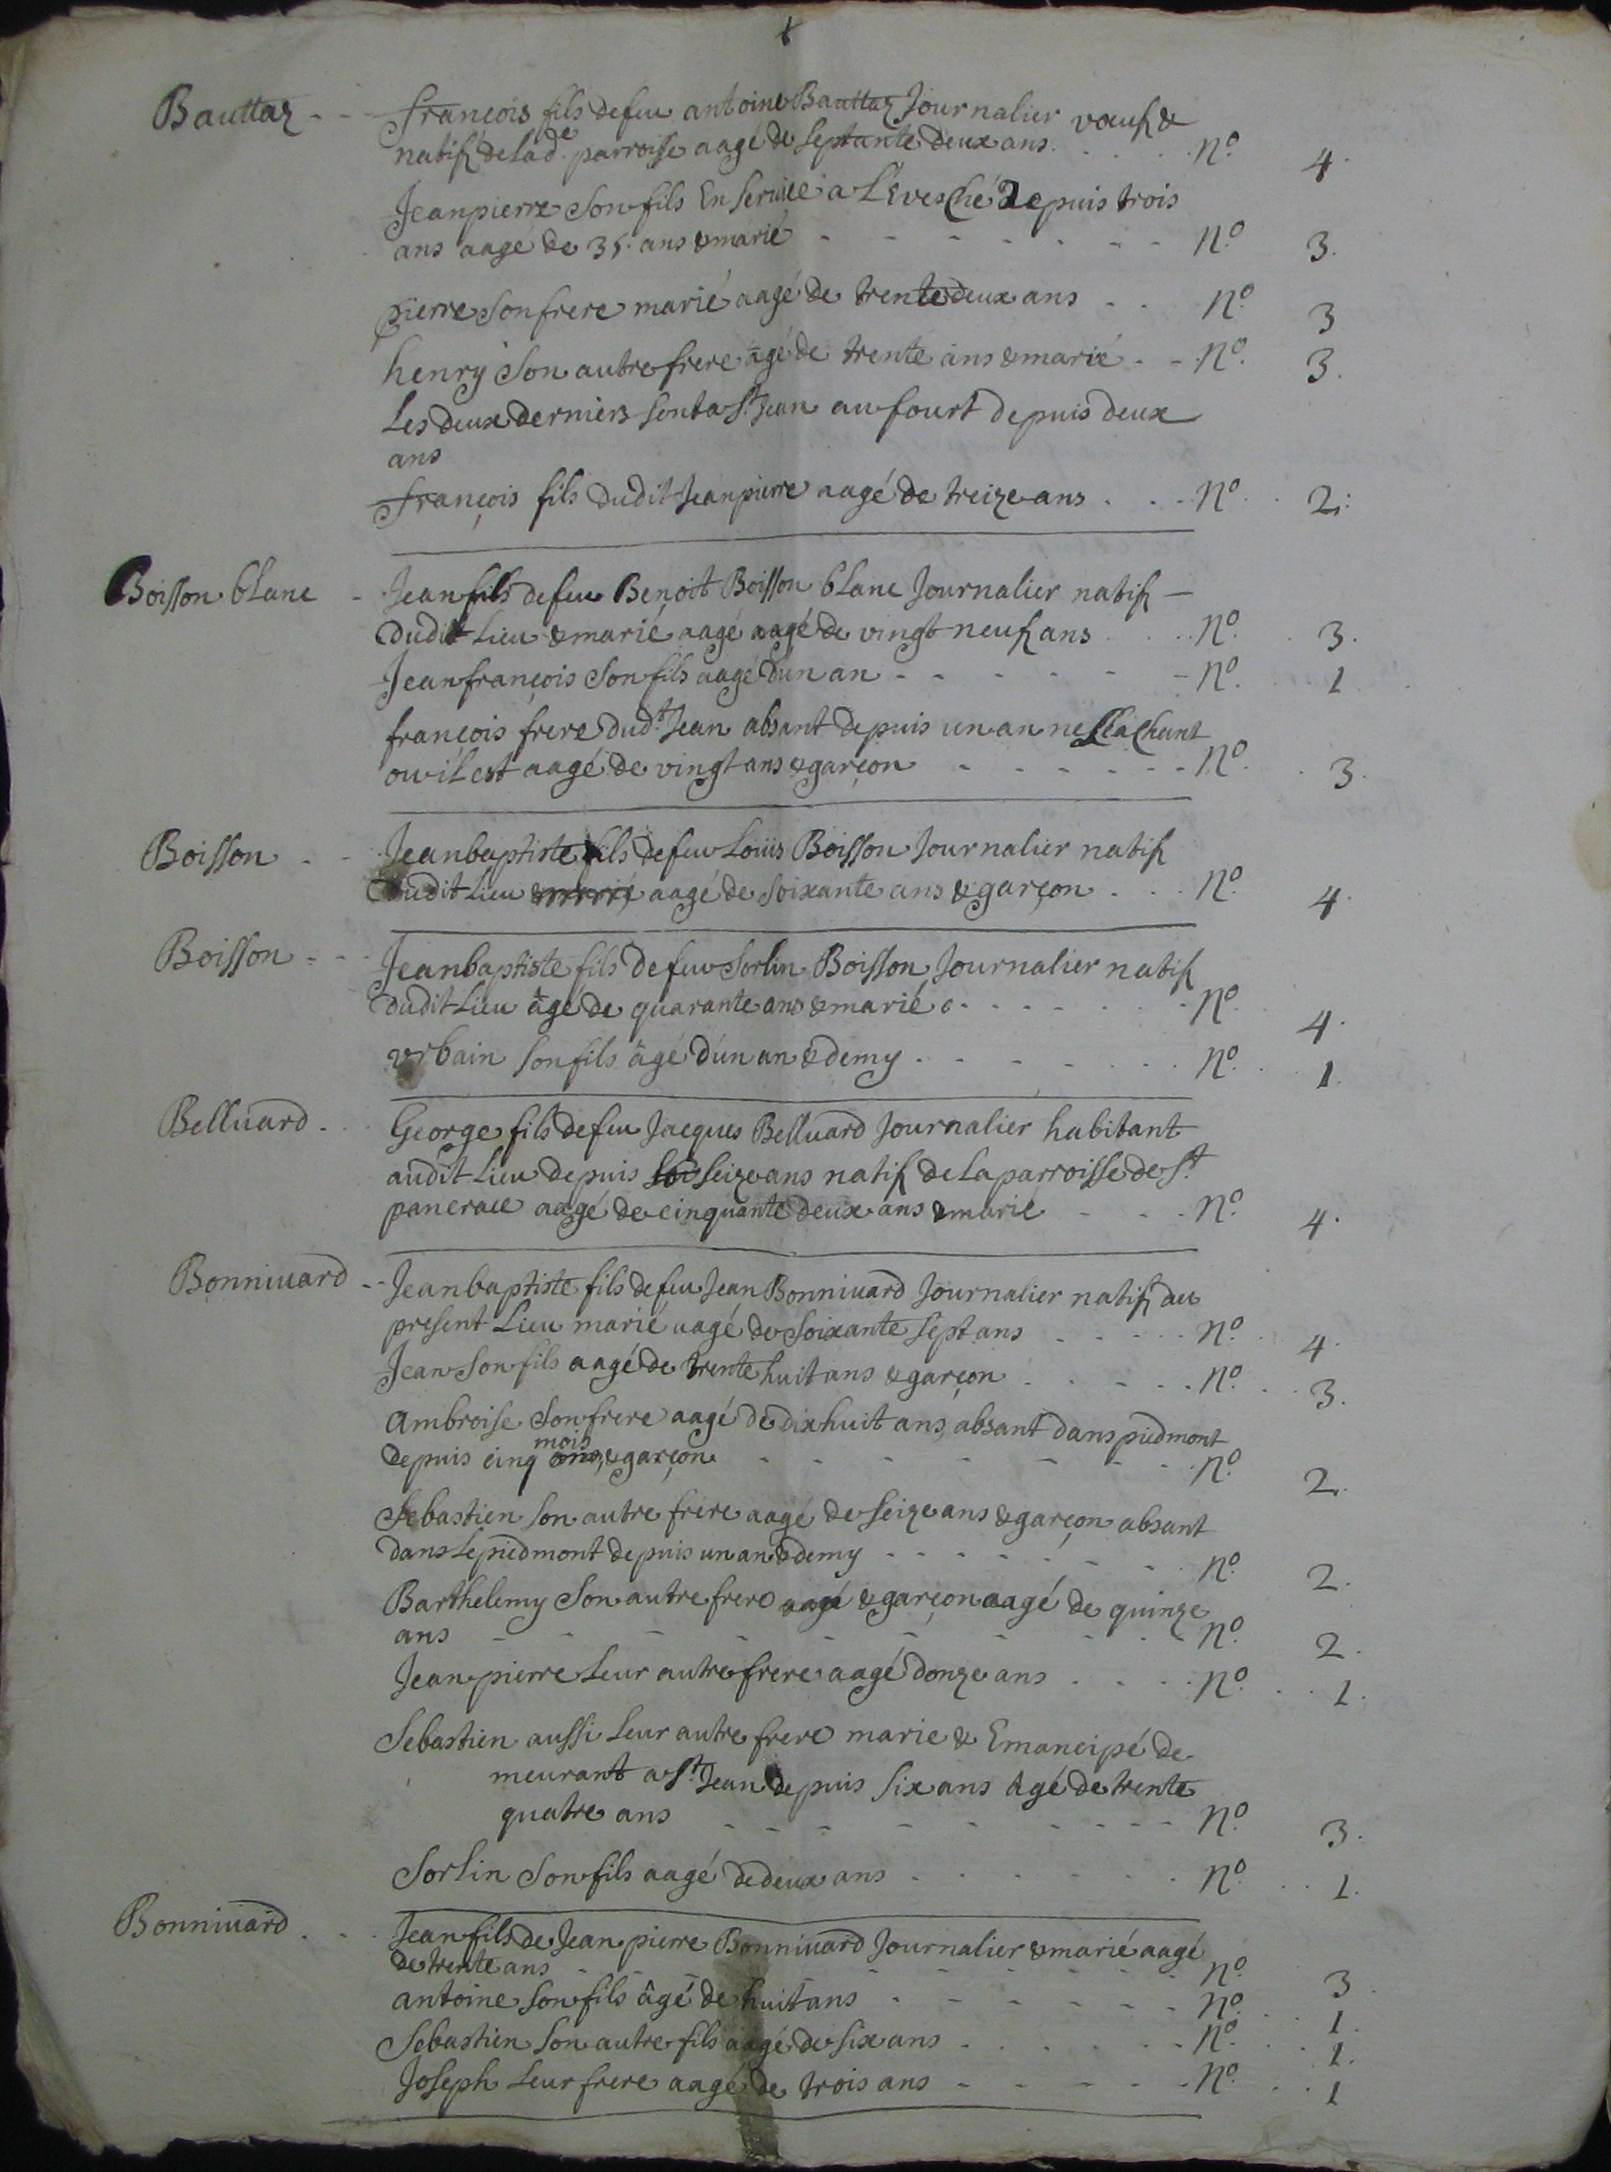 Bauttaz - - françois fils defeu antoine Bauttaz Journalier vœuf &
natif de lad.e parroisse aagé de septante deux ans. . . . . N.o 4.
Jeanpierre son fils En service a L'Evesché depuis trois
ans aagé de 35. ans & marié - - - - - - - N.o 3.
pierre son frere marié aagé de trente deux ans - - N.o 3
henry son autre frere âgé de trente ans & marié - - N.o 3.
Les deux derniers sont a St Jean au fourt depuis deux
ans
françois fils dudit Jeanpierre aagé de treize ans . . . N.o 2.
Boisson blanc - Jean fils defeu Benoit Boisson blanc Journalier natif -
dudit Lieu & marié aagé aagé de vingt neuf ans . . . N.o 3.
Jeanfrançois son fils aagé d'un an - - - - - - N.o 1
françois frere dud.t Jean absant depuis un an ne sçachant
ou il est aagé de vingt ans & garçon - - - - - - N.o 3.
Boisson - - Jeanbaptiste fils defeu Loüis Boisson Journalier natif
dudit Lieu & marié aagé de soixante ans & garçon . . . N.o 4.
Boisson - - Jeanbaptiste fils defeu Sorlin Boisson Journalier natif
dudit Lieu âgé de quarante ans & marié - - - - - - N.o 4.
vrbain son fils âgé d'un an & demy . - - - . . . N.o 1.
Belluard . . George fils defeu Jacques Belluard Journalier habitant
audit Lieu depuis seize ans natif de la parroisse de St.
pancrace aagé de cinquante deux ans & marié - - - N.o 4.
Bonniuard - - Jeanbaptiste fils defeu Jean Bonniuard Journalier natif du
present Lieu marié aagé de soixante sept ans . . . . . N.o 4.
Jean son fils aagé de trente huit ans & garçon . . - - . N.o 3.
Ambroise son frere aagé de dixhuit ans, absant dans piedmont
depuis cinq ans, mois & garçon - - - - - - - - N.o 2.
Sebastien son autre frere aagé de seize ans & garçon absant
dans le piedmont depuis un an & demy - - - - - - - N.o 2.
Barthelemy son autre frere aagé & garçon aagé de quinze
ans - - - - - - - - - - N.o 2.
Jean pierre leur autre frere aagé d'onze ans . . . . N.o 1.
Sebastien aussi leur autre frere marie & Emancipé de
meurant a St. Jean depuis six ans âgé de trente
quatre ans - - - - - - - - - N.o 3.
Sorlin son fils aagé de deux ans . . . . . . N.o 1.
Bonniuard . - . Jean fils de Jean pierre Bonniuard Journalier & marié aagé
de trente ans - - - - - - - - - - N.o 3
antoine son fils âgé de huit ans - - - - - - N.o 1.
Sebastien son autre fils aagé de six ans . . . . . N.o 1.
Joseph leur frere aagé de trois ans - - - - - N.o 1